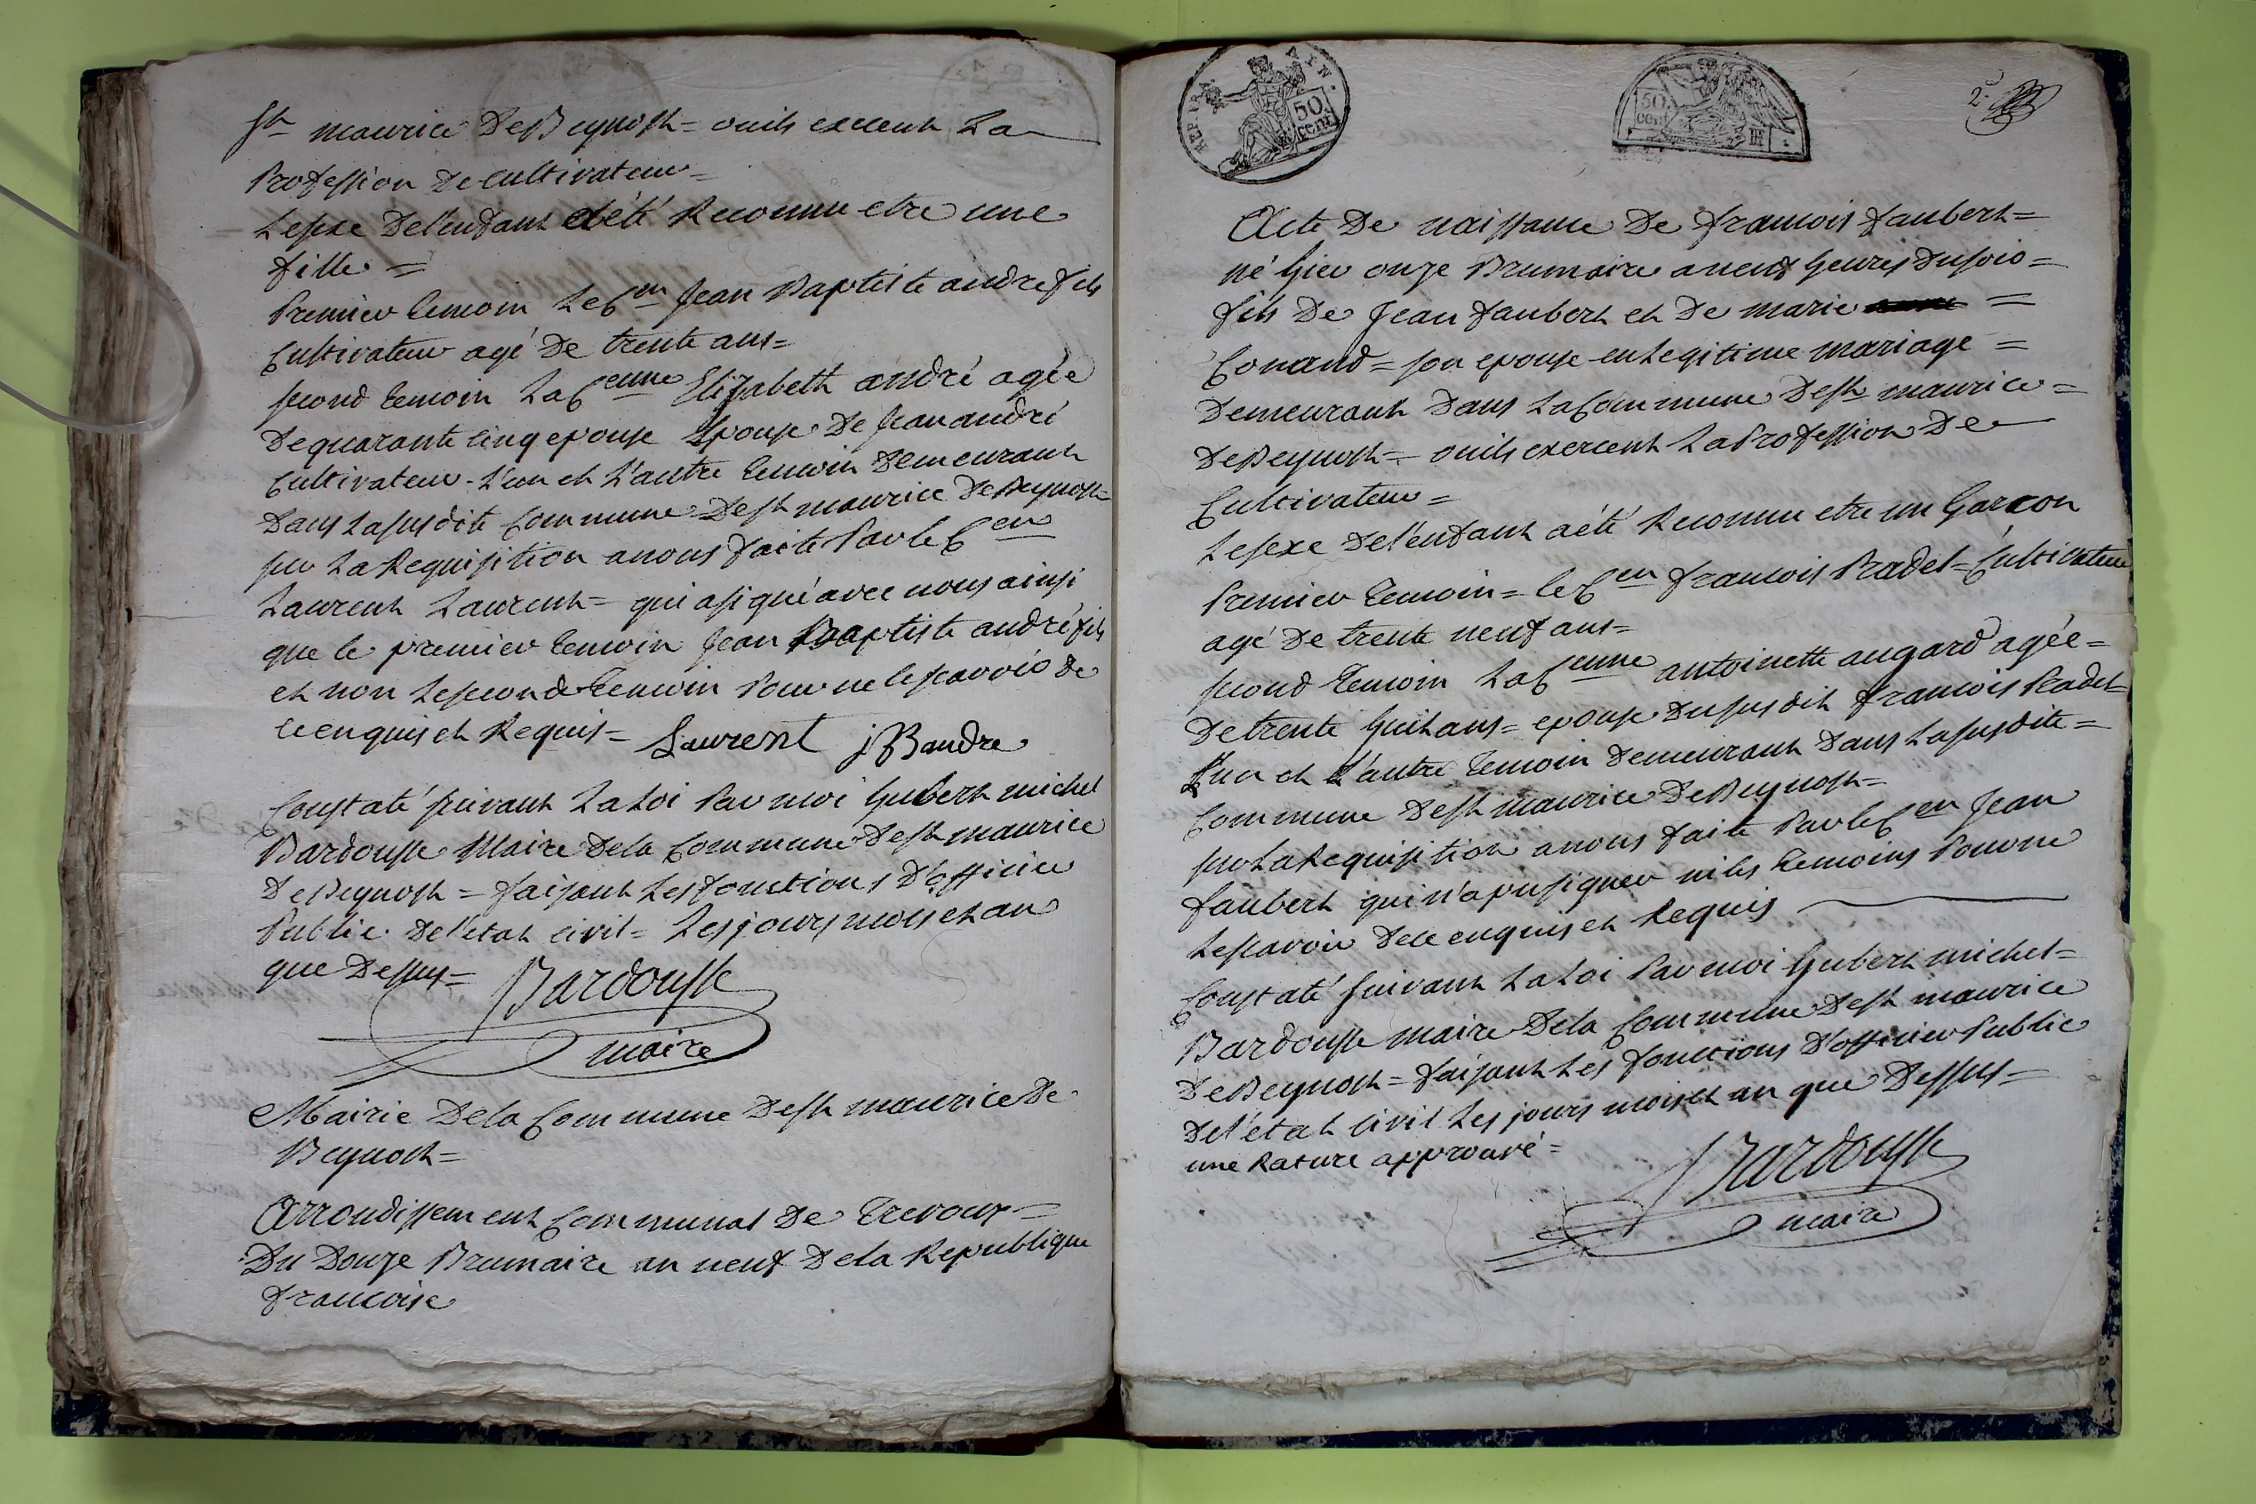 St maurice De Beynost = ou ils exercent La
Profession De cultivateur =
Le sexe De l'enfant a été Reconnu etre une
fille =
Premier temoin Le Cen Jean Baptiste andre fils
Cultivateur agé De trente ans =
second temoin La Cenne Elizabeth andré agée
De quarante cinq epouse Epouse De Jean andré
Cultivateur - L'un et L'autre temoin Demeurant
Dans La susdite Commune De st maurice De Beynost
sur La Requisition a nous faite Par le Cen
Laurent Laurent = qui a signé avec nous ainsi
que le premier temoin Jean Baptiste andré fils
et non Le second temoin Pour ne le scavoir De
ce enquis et Requis = Laurent JB andre
Constaté suivant La Loi Par moi hubert michel
Bardousse Maire De la Commune De st maurice
De Beynost = faisant Les fonctions D'officier
Public De l'etat civil = Les jours mois et an
que Dessus = Bardousse
maire
Mairie De la Commune De st maurice De
Beynost =
Arrondissement Communal De Trevoux =
Du Douze Brumaire an neuf De la Republique
francoise
REP. FRA.
50
cent
50
cent
2
Acte De naissance De francois faubert =
né hier onze Brumaire a neuf heures Du soir =
fils De Jean faubert et De marie =
Conand = son epouse en Legitime mariage =
Demeurant Dans La Commune De st maurice =
De Beynost = ou ils exercent La Profession De
Cultivateur =
Le sexe De l'enfant a été Reconnu etre un Garcon
Premier temoin = le Cen francois Pradel = Cultivateur
agé De trente neuf ans =
second temoin La Cenne antoinette augard agée =
De trente huit ans = epouse Du susdit francois Pradel
L'un et L'autre temoin Demeurant Dans La susdite =
Commune De st maurice De Beynost =
sur La Requisition a nous faite Par le Cen Jean
faubert qui n'a pu signer ni les temoins Pour ne
Le scavoir De ce enquis et Requis
Constaté suivant La Loi Par moi hubert michel =
Bardousse maire De la Commune De st maurice
De Beynost = faisant Les fonctions D'officier Public
De l'état Civil Les jours mois et an que Dessus =
une Rature approuvé =
Bardousse
maire